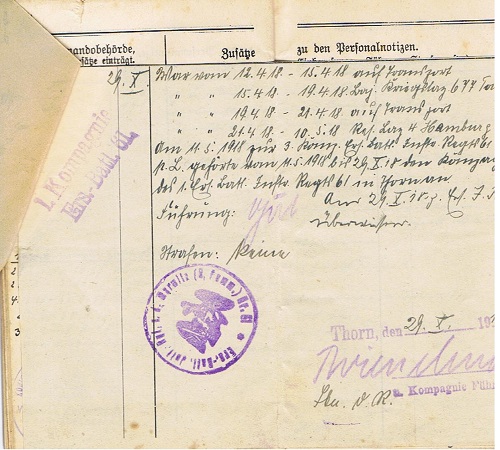 mandobehörde,
sätze einträgt.
Zusätze zu den Personalnotizen.
29. X. War vom 12.4.18 - 15.4.18 auf Transport
" " 15.4.18 - 19.4.18 Laz. Kriegslaz 677
" " 19.4.18 - 21.4.18 auf Transport
" " 21.4.18 - 10.5.18 Res. Laz 4 Hamburg
Am 11.5.1918 zur 3. Komp. Ers. Batl. Inftr. Regts 61
gehörte vom 11.5.1918 bis 29.X.18 den
des 1. Ers. Batl. Inftr. Regts 61 in Thorn an
Führung: Gut
Am 29.X.18 z. Ers. J.
überwiesen.
Strafen: Keine
1. Kompagnie
Ers.-Batl. 61
Ers.-Batl. Inf.-Rgt. v. d. Marwitz (8. Pomm.) Nr. 61
Thorn, den 29. X. 19
u. Kompagnie Füh
Ltn. d. R.